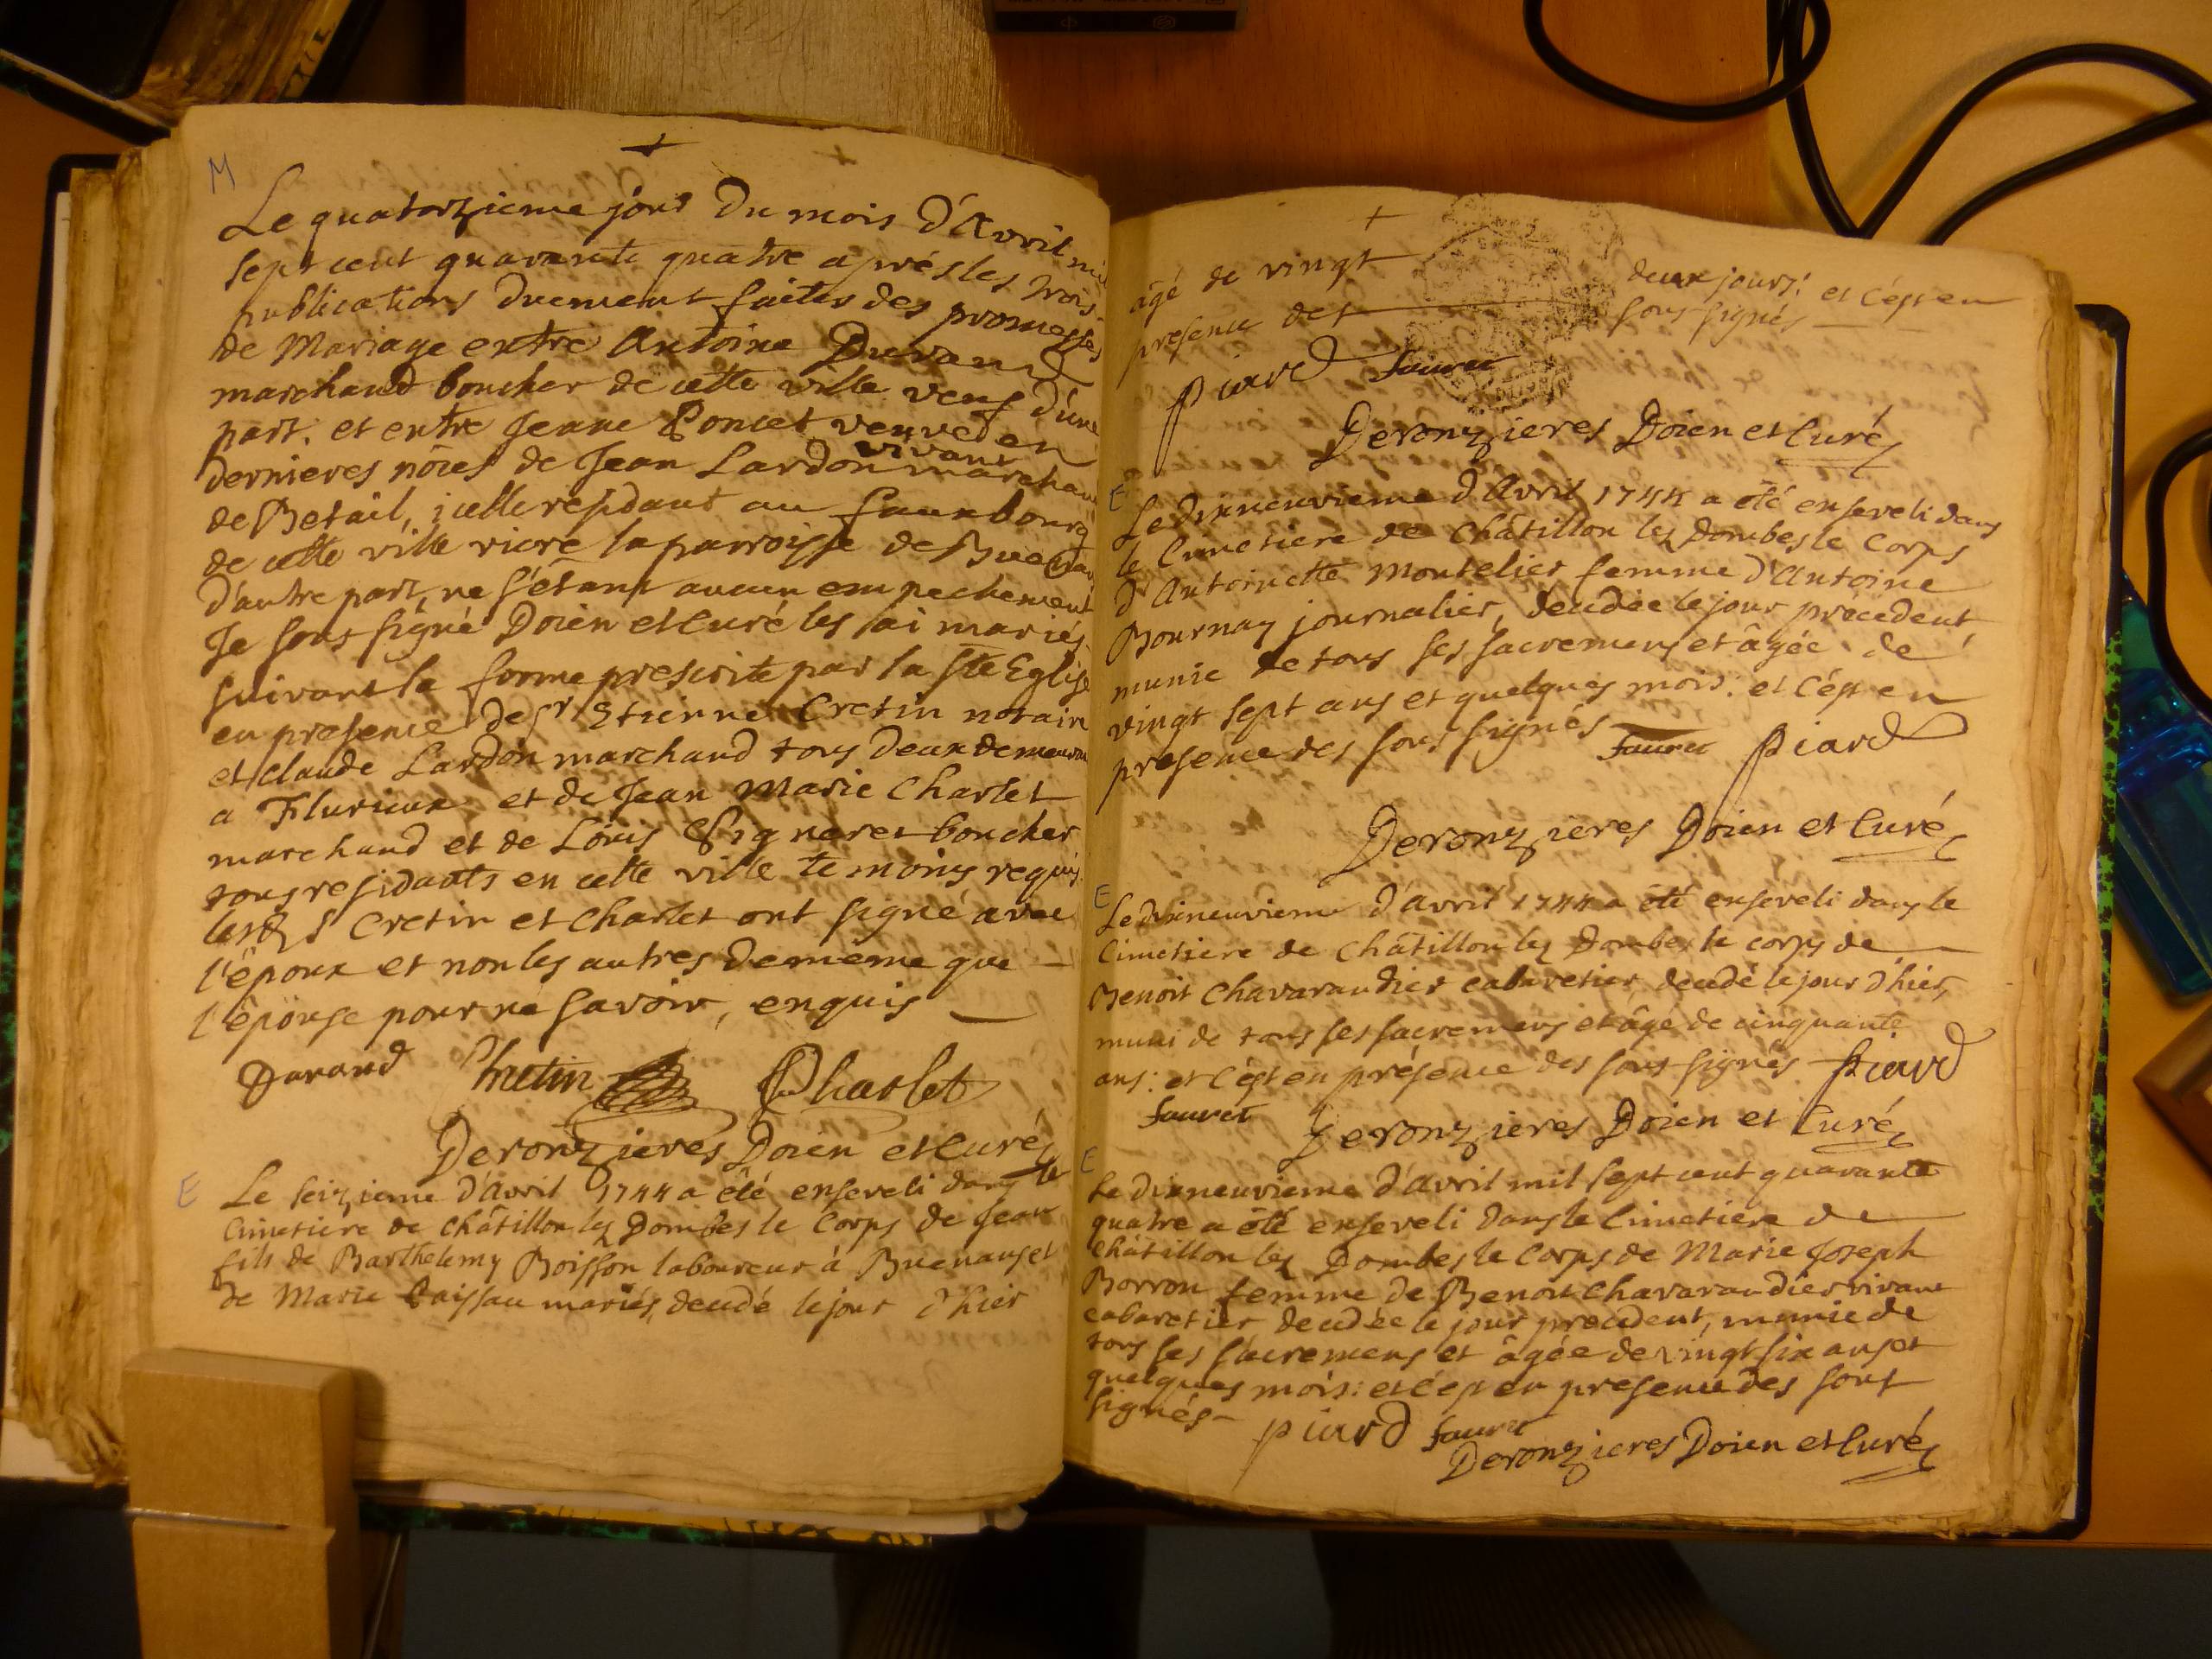 M
Le quatorzieme jour Du mois D'Avril mil
sept cent quarante quatre aprés les trois
publications duement faites des promesses
de Mariage entre Antoine Durand
marchand boucher de cette ville veuf d'une
part. et entre Jeanne Poncet veuve en
dernieres nôces de Jean Lardon vivant marchand
de Betail, icelle residant au fauxbourg
de cette ville riere la parroisse de Buenans
d'autre part, ne s'étant aucun empechement
Je sous signé Doien et Curé les ai mariés
suivant la forme prescrite par la ste Eglise
en presence de sr Etienne Cretin notaire
et Claude Lardon marchand tous deux demeurans
a Flurieux et de Jean Marie Charlet
marchand et de Loüis Pignaret boucher
tous residants en cette ville temoins requis
lesqls Cretin et Charlet ont signé avec
l'époux et non les autres de méme que
l'épouse pour ne savoir, enquis
Durand Chretin Charlet
Deronzieres Doien et Curé
E
Le seizieme d'Avril 1744 a été enseveli dans le
Cimetiere de Châtillon lez Dombes le Corps de Jean
fils de Barthelemy Boisson laboureur à Buenans et
de Marie mariés, decedé le jour d'hier
âgé de vingt deux jours: et c'est en
presence des sous signés
Piard fauret
Deronzieres Doien et Curé
E
Le dixneuvieme d'Avril 1744 a été enseveli dans
le Cimetiere de Châtillon lez Dombes le Corps
d'Antoinette Montelier femme d'Antoine
Bournay journalier, decedée le jour précedent,
munie de tous ses sacremens et âgée de
vingt sept ans et quelques mois: et c'est en
presence des sous signés fauret Piard
Deronzieres Doien et Curé
E
Le dixneuvieme d'avril 1744 a été enseveli dans le
Cimetiere de Châtillon lez Dombes le corps de
Benoit Chavaraudier cabaretier, decedé le jour d'hier,
muni de tous ses sacremens et âgé de cinquante
ans: et c'est en présence des sous signés Piard
fauret Deronzieres Doien et Curé
E
Le dixneuvieme d'avril mil sept cent quarante
quatre a été enseveli dans le Cimetiere de
Châtillon lez Dombes le Corps de Marie Joseph
Borron femme de Benoit Chavaraudier vivant
cabaretier decedée le jour precedent, munie de
tous ses sacremens et âgée de vingt six ans et
quelques mois: et c'est en presence des sous
signés Piard fauret
Deronzieres Doien et Curé